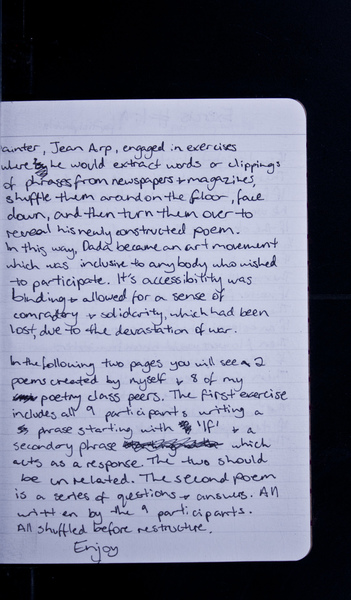 ainter, Jean Arp, engaged in exercises
where he would extract words or clippings
of phrases from newspapers + magazines,
shuffle them around on the floor, face
down, and then turn them over to
reveal his newly constructed poem.
In this way, Dada became an art movement
which was inclusive to anybody who wished
to participate. It's accessibility was
binding + allowed for a sense of
comradery + solidarity, which had been
lost, due to the devastation of war.
In the following two pages you will see 2
poems created by myself + 8 of my
poetry class peers. The first exercise
includes all 9 participants writing a
phrase starting with 'If' + a
secondary phrase which
acts as a response. The two should
be unrelated. The second poem
is a series of questions + answers. All
written by the 9 participants.
All shuffled before restructure.
Enjoy